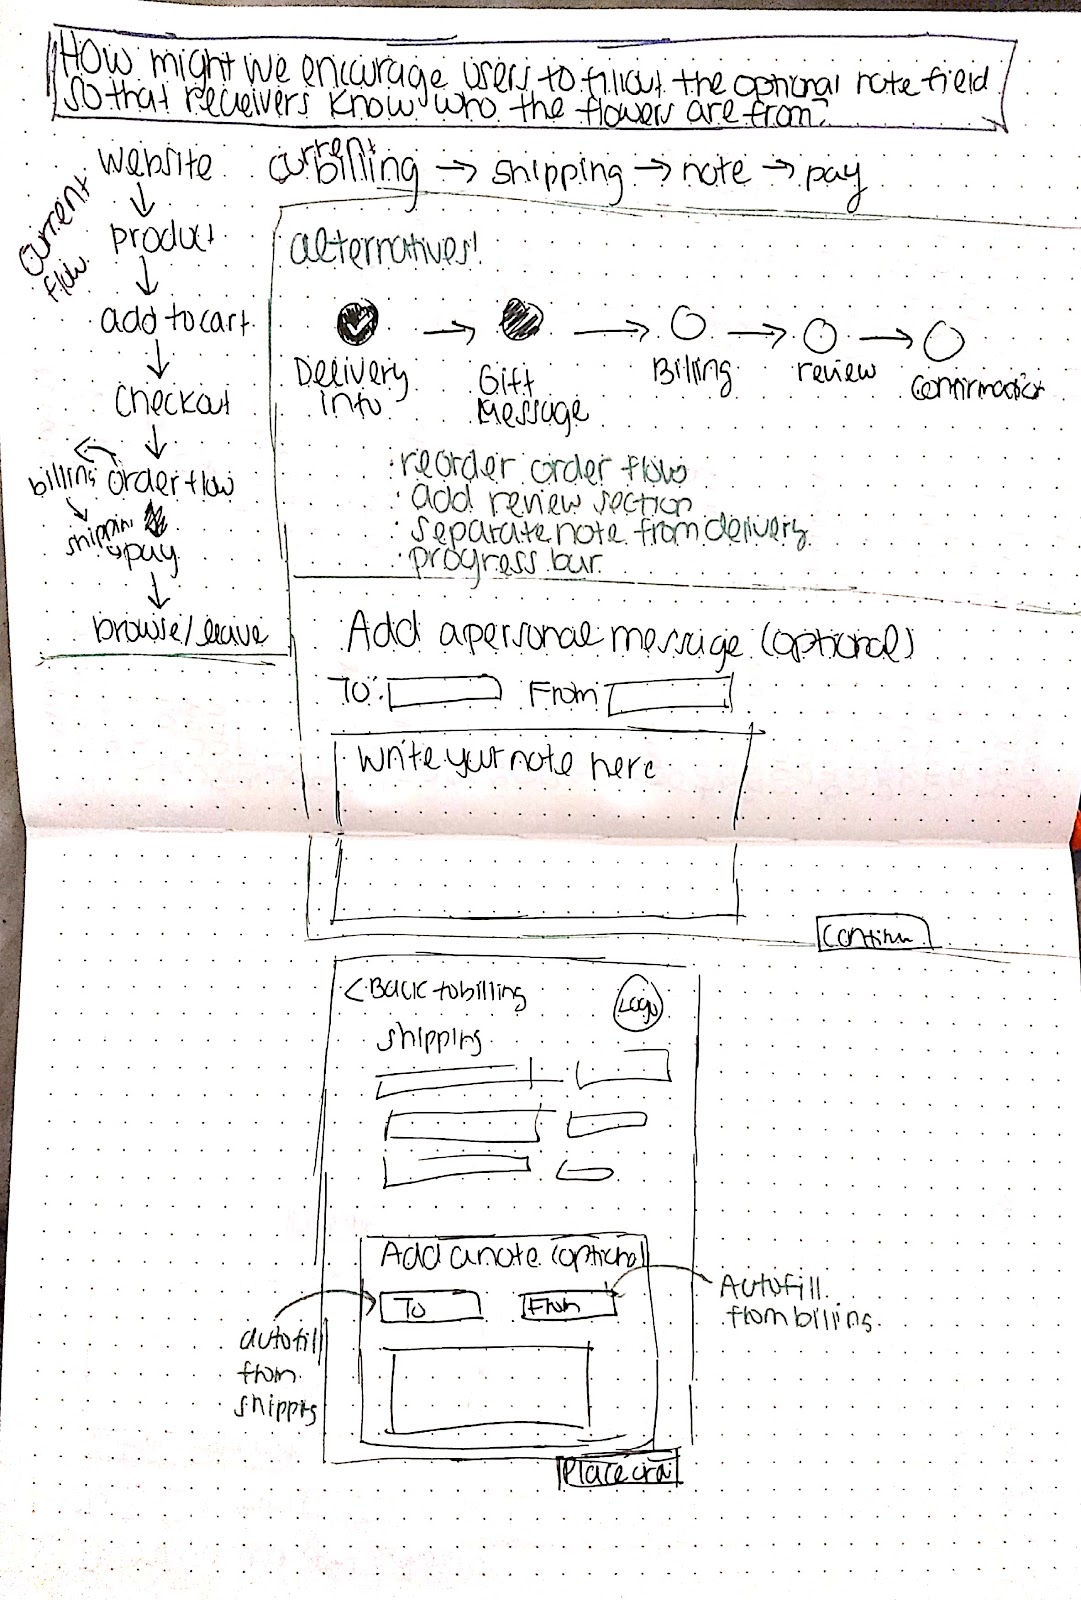 How might we encurage users to fillout the optional note field
so that receivers know who the flowers are from?
website
current
billing → shipping → note → pay
current
flow
product
add to cart
checkout
billing
order flow
shippin
pay
browse/leave
alternatives!
Delivery
Info
Gift
Message
Billing
review
Confirmation
· reorder order flow
· add review section
· separate note from delivery
· progress bar
Add a personal message (optional)
To:
From
Write your note here
Continu
< Back to billing
Logo
shipping
Add a note (optional)
To
From
Autofill
from billing
autofill
from
shipping
Place order